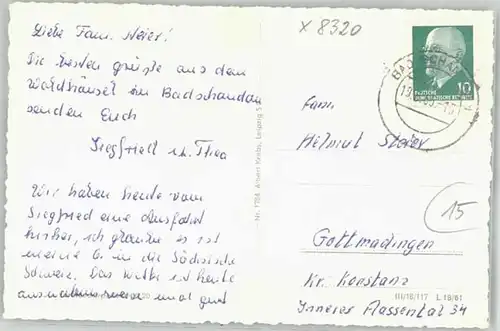 Liebe Fam. Meier!
Die besten Grüße aus dem
Waldhäusel in Badschandau
senden Euch
Siegfried u. Thea
Wir haben heute vom
Siegfried eine Ausfahrt
hierher, ich glaube es ist
meine 6. in die Sächsische
Schweiz. Das Wetter ist heute
ausnahmsweise mal gut
x 8320
DEUTSCHE
DEMOKRATISCHE REPUBLIK
10
BAD SCHANDAU
Fam.
Helmut
15
Gottmadingen
Kr. Konstanz
Innerer Massental 34
III/18/117 L 19/61
Nr. 1704 Leipzig